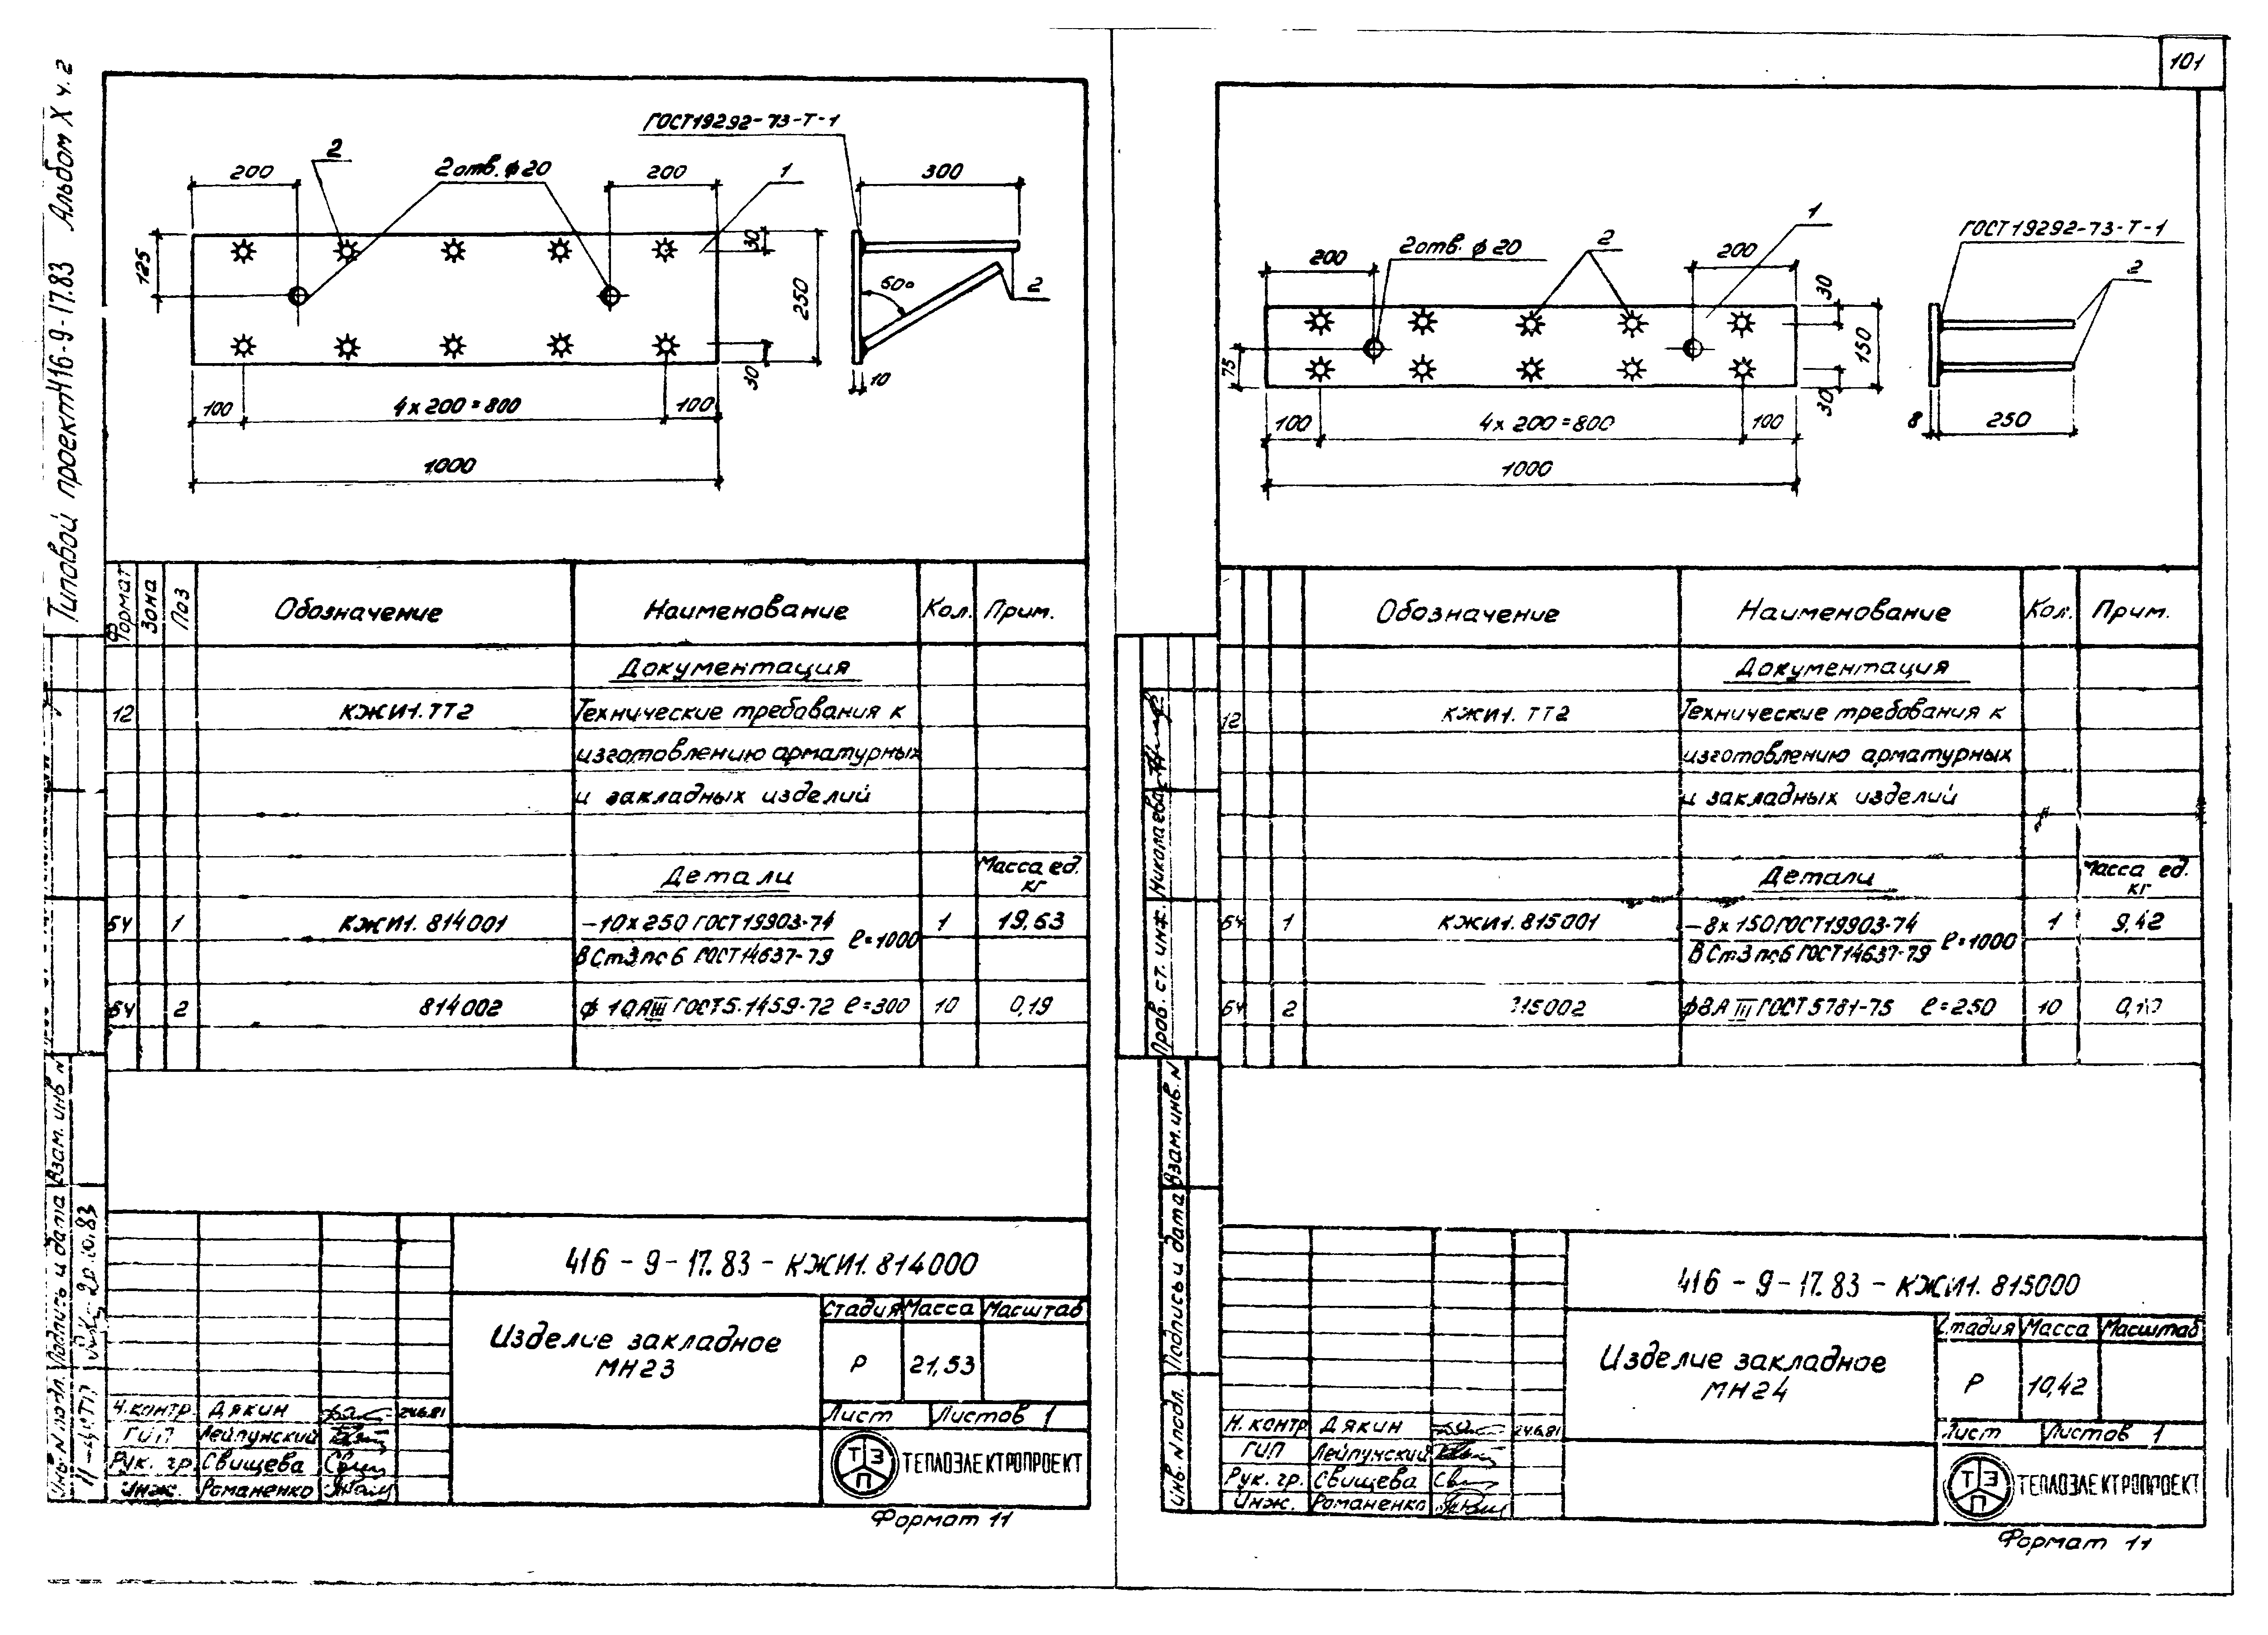 101
Типовой проект 416-9-17.83 Альбом X ч. 2
ГОСТ19292-73-Т-1
2
2 отв. ф 20
200
200
1
300
125
30
250
60°
2
30
10
100
4 х 200 = 800
100
1000
Формат
Зона
Поз
Обозначение
Наименование
Кол.
Прим.
Документация
12
КЖИ1. ТТ2
Технические требования к
изготовлению арматурных
и закладных изделий
Детали
Масса ед.
кг
БЧ
1
КЖИ1. 814001
–10х250 ГОСТ19903-74
ВСт3пс6 ГОСТ14637-79
ℓ=1000
1
19,63
БЧ
2
814002
ф 10АIII ГОСТ5.1459-72 ℓ=300
10
0,19
Взам. инв N
Подпись и дата
20.10.83
Инв. N подл.
416 – 9 – 17.83 – КЖИ1. 814000
Изделие закладное
МН23
Стадия
Масса
Масштаб
Р
21,53
Лист
Листов 1
Н. контр
Дякин
24.6.81
ГИП
Лейпунский
Рук. гр.
Свищева
Инж.
Романенко
ТЭП
ТЕПЛОЭЛЕКТРОПРОЕКТ
Формат 11
1
ГОСТ19292-73-Т-1
200
2 отв. ф 20
2
200
2
30
150
75
30
100
4 х 200 = 800
100
8
250
1000
Обозначение
Наименование
Кол.
Прим.
Документация
12
КЖИ1. ТТ2
Технические требования к
изготовлению арматурных
и закладных изделий
Детали
Масса ед.
кг
БЧ
1
КЖИ1. 815001
–8х150 ГОСТ19903-74
ВСт3пс6 ГОСТ14637-79
ℓ=1000
1
9,42
БЧ
2
15002
ф8А III ГОСТ 5781-75 ℓ=250
10
Пров. ст. инж. Николаева
Взам. инв. N
Подпись и дата
Инв. N подл.
416 – 9 – 17.83 – КЖИ1. 815000
Изделие закладное
МН24
Стадия
Масса
Масштаб
Р
10,42
Лист
Листов 1
Н. контр
Дякин
24.6.81
ГИП
Лейпунский
Рук. гр.
Свищева
Инж.
Романенко
ТЭП
ТЕПЛОЭЛЕКТРОПРОЕКТ
Формат 11